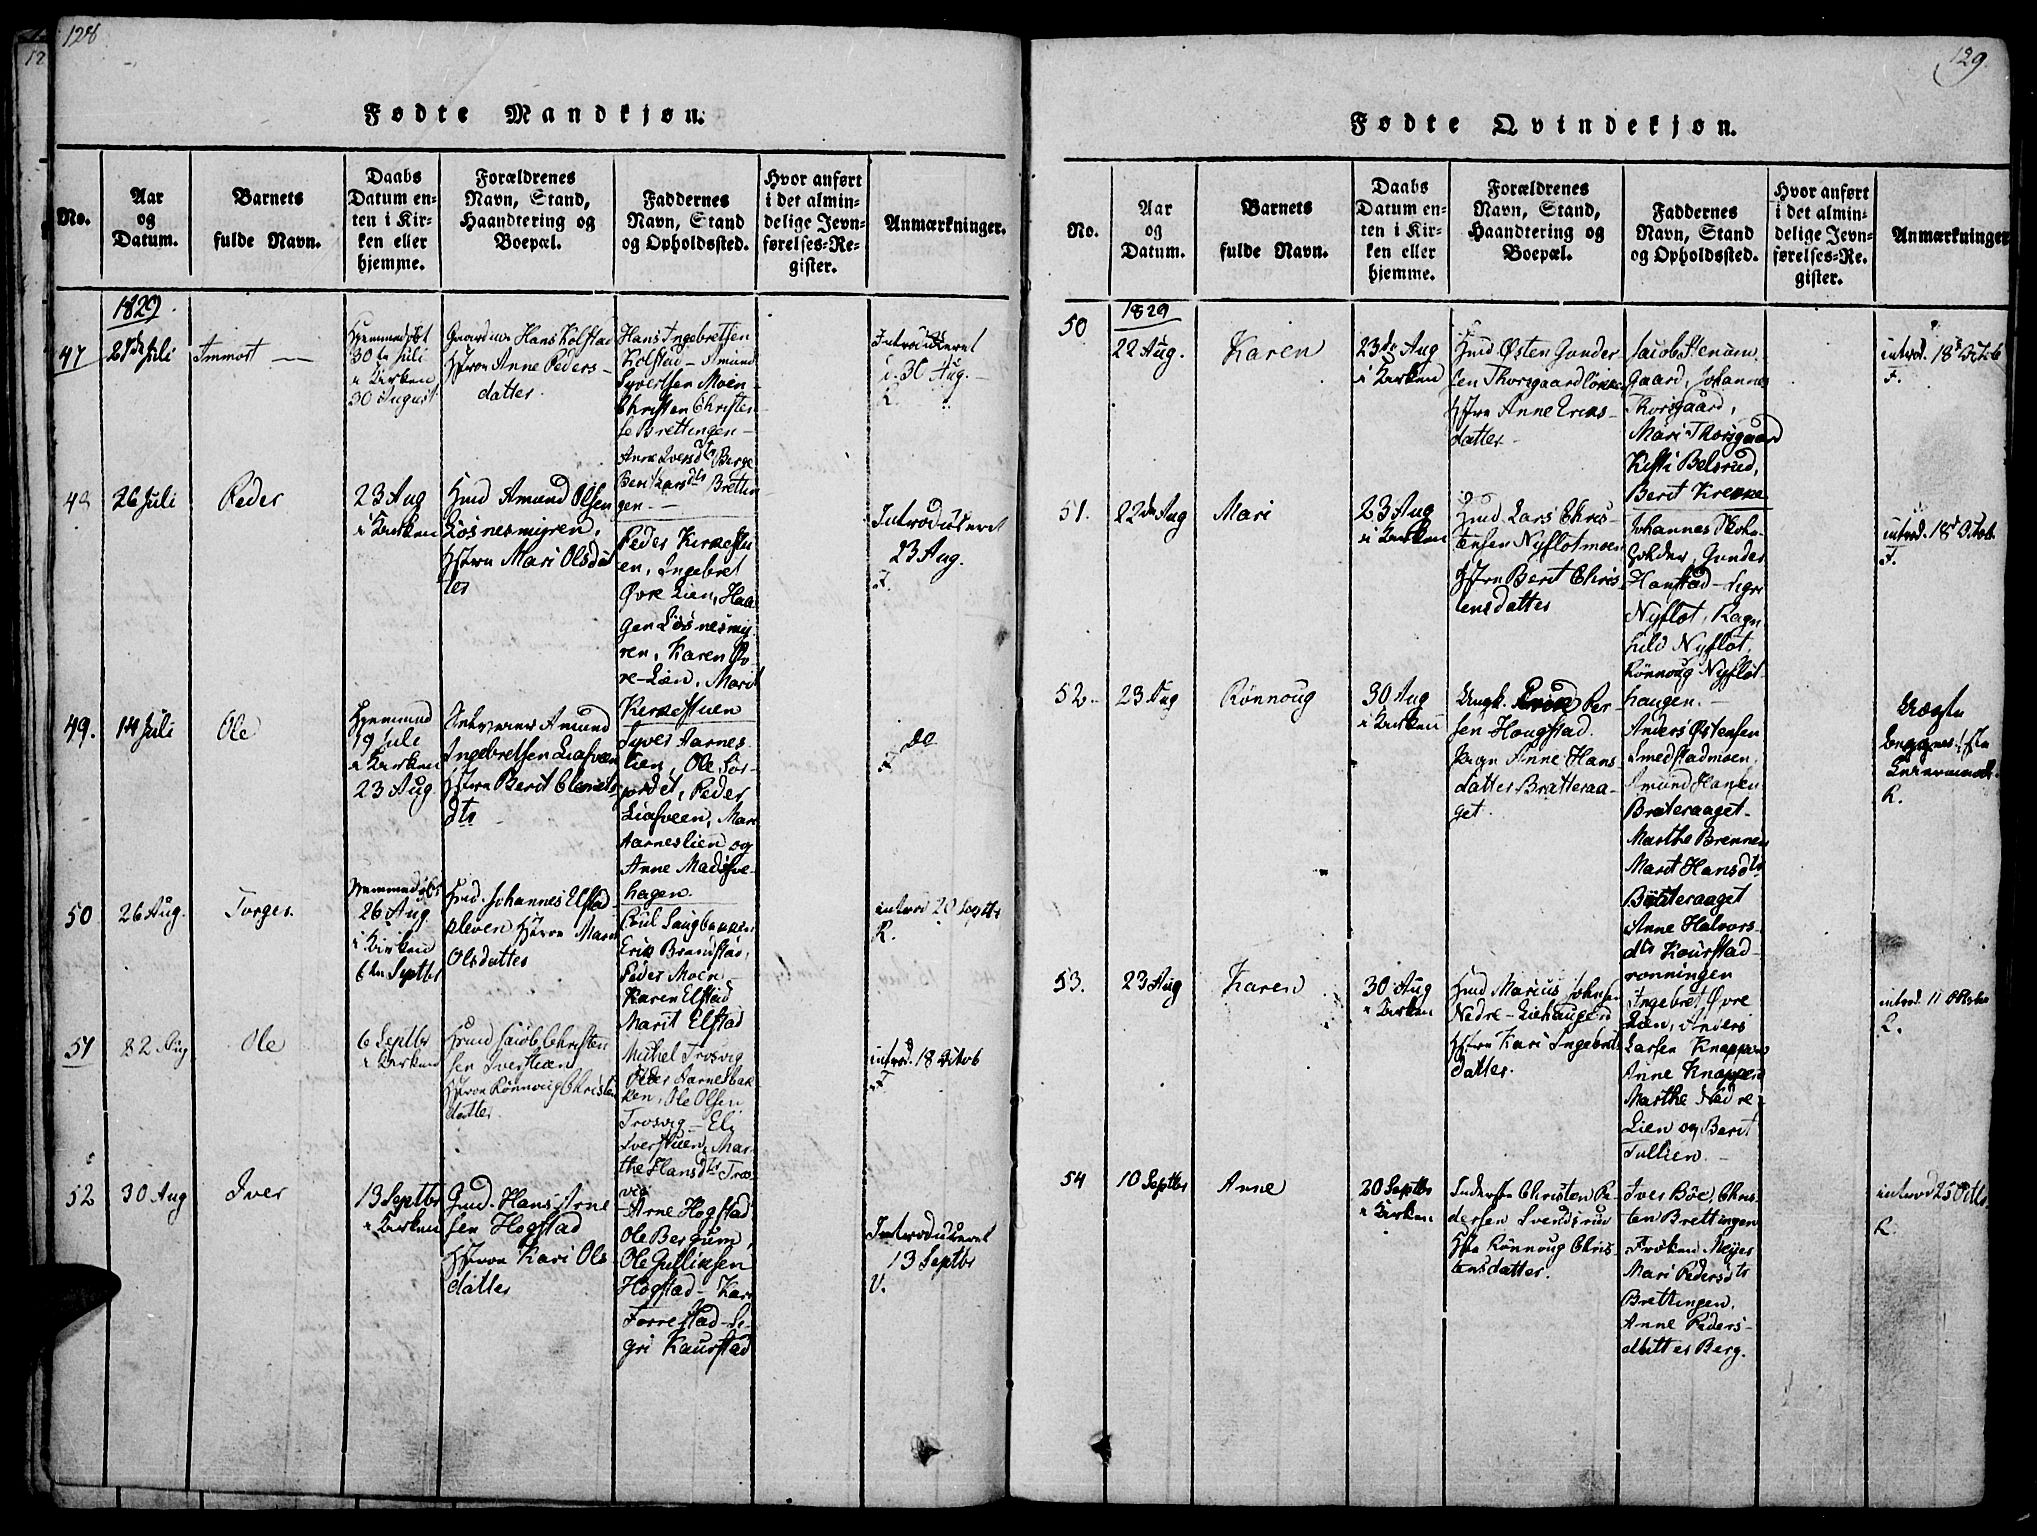 128
Fødte Mandkjøn.
No.
Aar
og
Datum.
Barnets
fulde Navn.
Daabs
Datum en-
ten i Kir-
ken eller
hjemme.
Forældrenes
Navn, Stand,
Haandtering og
Boepæl.
Faddernes
Navn, Stand
og Opholdssted.
Hvor anført
i det almin-
delige Jevn-
førelses-Re-
gister.
Anmærkninger.
1829.
47
Juli
Ammost
Hjemmedøbt
30te Juli
i Kirken
30 August
Hans Kolstad
Hstroe Anne Peders-
datter.
Hans Ingebretsen
Kolstad - Amund
Syvertsen Moen -
Christen Christen-
se Brettingen -
Anne Iversdt Berge
Berit Larsdtr Brettin
gen. -
Introduceret
d. 30 Aug.
26 Juli
Peder
23 Aug
i Kirken
Hmd Amund Olsen
Løsnesmyren,
Hstroe Mari Olsdat
ter
Peder Kirkestu
en, Ingebret
Øvre Lien, Haa
gen Løsnesmy-
ren, Karen Øv
re-Lien, Marit
Kirkestuen
Introduceret
23 Aug.
49.
14 Juli
Ole
19 Juli
i Kirken
23 Aug
Amund
Ingebretsen
Hstroe Berit
dtr
Syver Aarnes-
lien, Ole Sør-
jordet, Peder
Mari
Aarneslien og
Anne
hagen
do
50
26 Aug.
Torger
Hjemmedøbt
26 Aug
i Kirken
6te Septbr
Hmd. Johannes Elstad
kleven Hstroe Mari
Olsdatter
Poul Haugbakken
Erik Brandstad,
Peder Moen
Karen Elstad
Marit Elstad
introd 20 Septbr
R.
51
22 Aug
Ole
6 Septbr
i Kirken
Jacob Christen
sen Iverstuen
Hstroe Rønnoug Christen
datter.
Mikkel Trosvig
Peder Aarnesbak
ken, Ole Olsen
Trosvig - Eli
Iverstuen, Mar
the Hansdtr Tros
vig
introd. 18 Octob
52
30 Aug
Iver
13 Septbr
i Kirken
Gmd. Hans Arne
sen Hogstad
Hstroe Kari Ols
datter
Arne Hogstad
Ole Bergum,
Ole Gulliksen
Hogstad - Kari
Forrestad - Si-
gri Kaurstad
Introduceret
13 Septbr
V.
129.
Fødte Qvindekjøn.
No.
Aar
og
Datum.
Barnets
fulde Navn.
Daabs
Datum en-
ten i Kir-
ken eller
hjemme.
Forældrenes
Navn, Stand,
Haandtering og
Boepæl.
Faddernes
Navn, Stand
og Opholdssted.
Hvor anført
i det almin-
delige Jevn-
førelses-Re-
gister.
Anmærkninger
1829
50
22 Aug.
Karen
23de Aug
i Kirken
Hmd Østen Gunder
sen Thorsgaardløkken
Hstroe Anne Eriks-
datter -
Jacob Stenum-
Gaard, Johannes
Thorsgaard,
Mari Thorsgaard
Kisti Belsrud,
Berit Krekke
introd. 18 Octob
F.
51.
22de Aug
Mari
23 Aug
i Kirken
Hmd. Lars Chris-
tensen Nyflotmoen
Hstroe Berit Chris
tensdatter
Johannes
Gunder
Hanstad - Sigri
Nyflot, Ragn
hild Nyflot,
Rønnoug Nyflot-
haugen. -
introd. 18 Octob.
F.
52
23 Aug
Rønnoug
30 Aug
i Kirken
Ungk. Erik Per-
sen Hougstad.
Pige Anne Hans-
datter Bratteraa-
get.
Anders Østensen
Smedstadmoen,
Amund Hansen
Brateraaget -
Marthe Brennen
Marit Hansdtr
Bratteraaget
Anne Halvors-
dtr Kourstad-
rønningen
R.
53.
23 Aug
Karen
30 Aug
i Kirken
Hmd Marius Johnsen
Nedre-Liehaugen
Hstroe Kari Ingebrets
datter.
Ingebret Øvre
Lien, Anders
Larsen Knappen
Anne Knappen
Marthe Nedre-
Lien og Berit
Tullien. -
introd. 11 Octobr
R.
54
10 Septbr
Anne
20 Septbr
i Kirken
Inderste Christen Pe-
dersen Svendsrud
Hstr Rønnoug Chris-
tensdatter.
Iver Bøe, Chris-
ten Brettingen
Frøken Meyer
Mari Pedersdtr
Brettingen.
Anne Peders-
datter Berg.
introd 25 Octb
R.